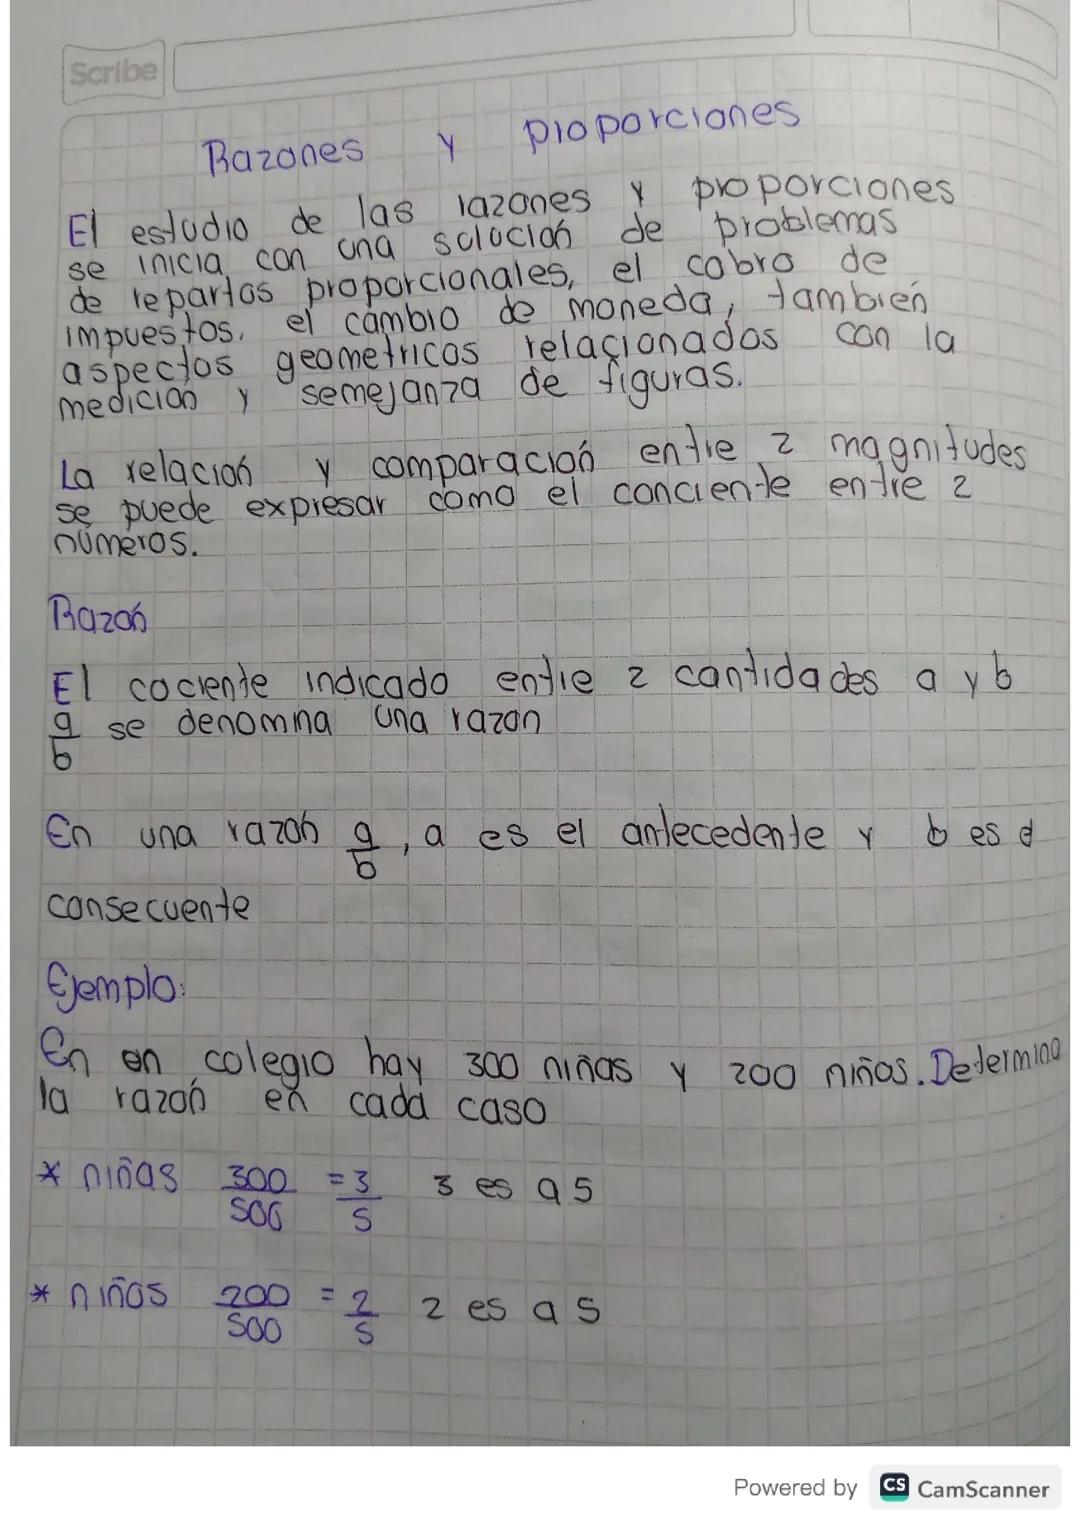 Scribe
Razones y proporciones
El estudio de las razones y proporciones
se inicia con una solución de problemas
de repartos proporcionales, el cobro de
impuestos, el cambio de moneda, también
aspectos geometricos relacionados con la
medición y semejanza de figuras.
La relación y comparación entre 2 magnitudes
se puede expresar como el conciente entre 2
números.
Razón
El cociente indicado entre 2 cantidades a y b
a/b se denomina una razon
En una razón a/b, a es el antecedente y b es el
consecuente
Ejemplo:
En en colegio hay 300 niñas y 200 niños. Determina
la razón en cada caso
* niñas 300/500 = 3/5 3 es a 5
* niños 200/500 = 2/5 2 es a 5
Powered by CS CamScanner